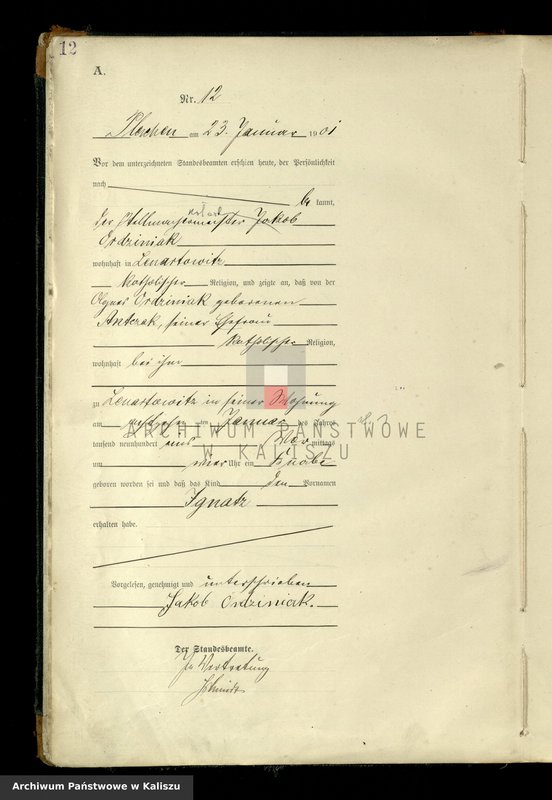 12
A.
Nr. 12
Pleschen am 23. Januar 1901
Vor dem unterzeichneten Standesbeamten erschien heute, der Persönlichkeit
nach be kannt,
der Stellmacher Jakob
Ordziniak
wohnhaft in Lenartowitz
katholischer Religion, und zeigte an, daß von der
Agnes Ordziniak geborenen
Antczak, seiner Ehefrau
katholischer Religion,
wohnhaft bei ihm
zu Lenartowitz in seiner Wohnung
am ten Januar des Jahres
tausend neunhundert eins Vor mittags
um Uhr ein Knabe
geboren worden sei und daß das Kind den Vornamen
Ignatz
erhalten habe.
Vorgelesen, genehmigt und unterschrieben
Jakob Ordziniak.
Der Standesbeamte.
In Vertretung
Schmidt
ARCHIWUM PAŃSTWOWE
W KALISZU
Archiwum Państwowe w Kaliszu